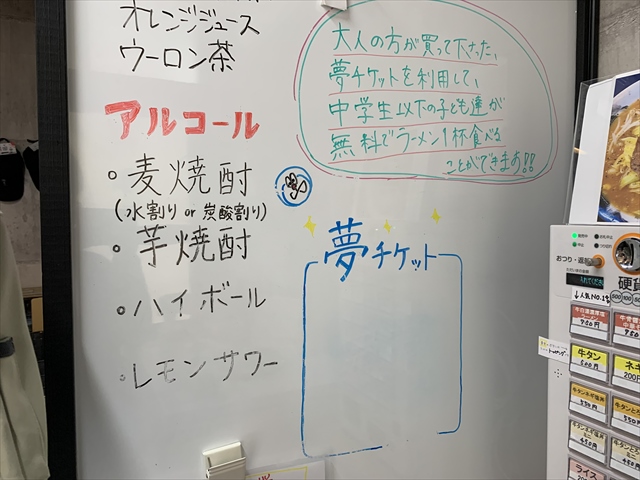 オレンジジュース
ウーロン茶
アルコール
・麦焼酎
(水割り or 炭酸割り)
・芋焼酎
・ハイボール
・レモンサワー
大人の方が買って下さった、
夢チケットを利用して、
中学生以下の子ども達が
無料でラーメン1杯食べる
ことができます!!
夢チケット
おつり・返却
硬貨
↓人気NO.1
950円
牛タン
500円
ネギ
200円
550円
450円
450円
ライス